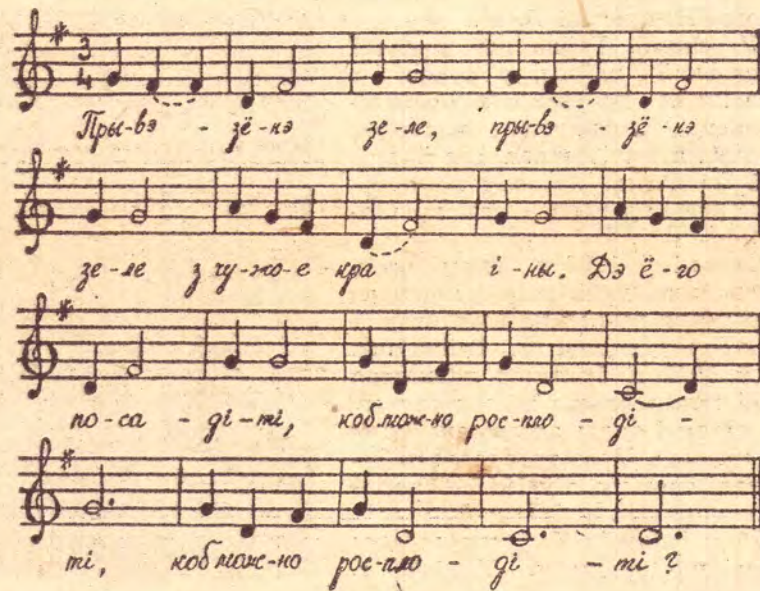 3
4
Пры-вэ - зё-нэ зе-ле, пры-вэ - зё-нэ
зе-ле з чу-жо-е кра і-ны. Дэ ё-го
по-са - ді-ті, коб мож-но рос-пло - ді -
ті, коб мож-но рос-пло - ді - ті?